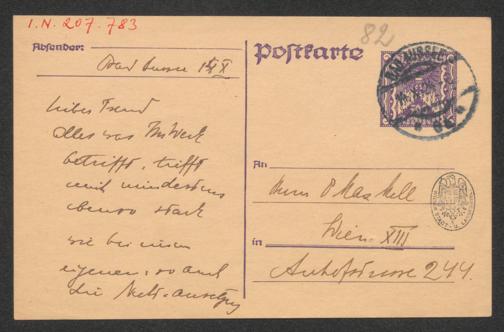 I.N. 207.783
82
Absender:
Bad Aussee
Postkarte
BAD AUSSEE
Lieber Freund
Alles was Ihr Werk
betrifft, trifft
mich mindestens
ebenso stark
wie bei einem
eigenen: so auch
die
An
Herrn
in
Wien XIII
244.